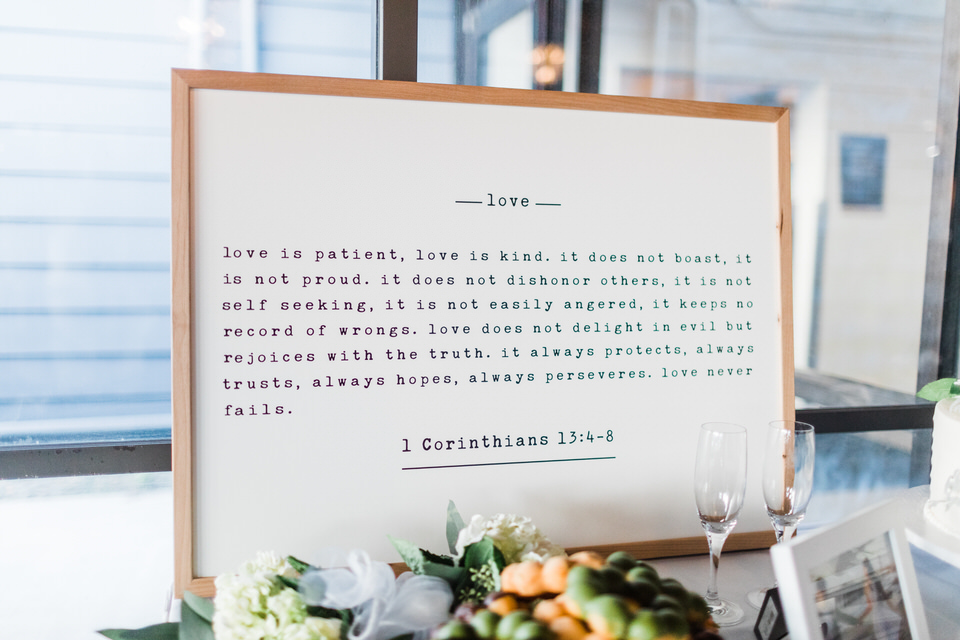 — love —
love is patient, love is kind. it does not boast, it
is not proud. it does not dishonor others, it is not
self seeking, it is not easily angered, it keeps no
record of wrongs. love does not delight in evil but
rejoices with the truth. it always protects, always
trusts, always hopes, always perseveres. love never
fails.
1 Corinthians 13:4-8